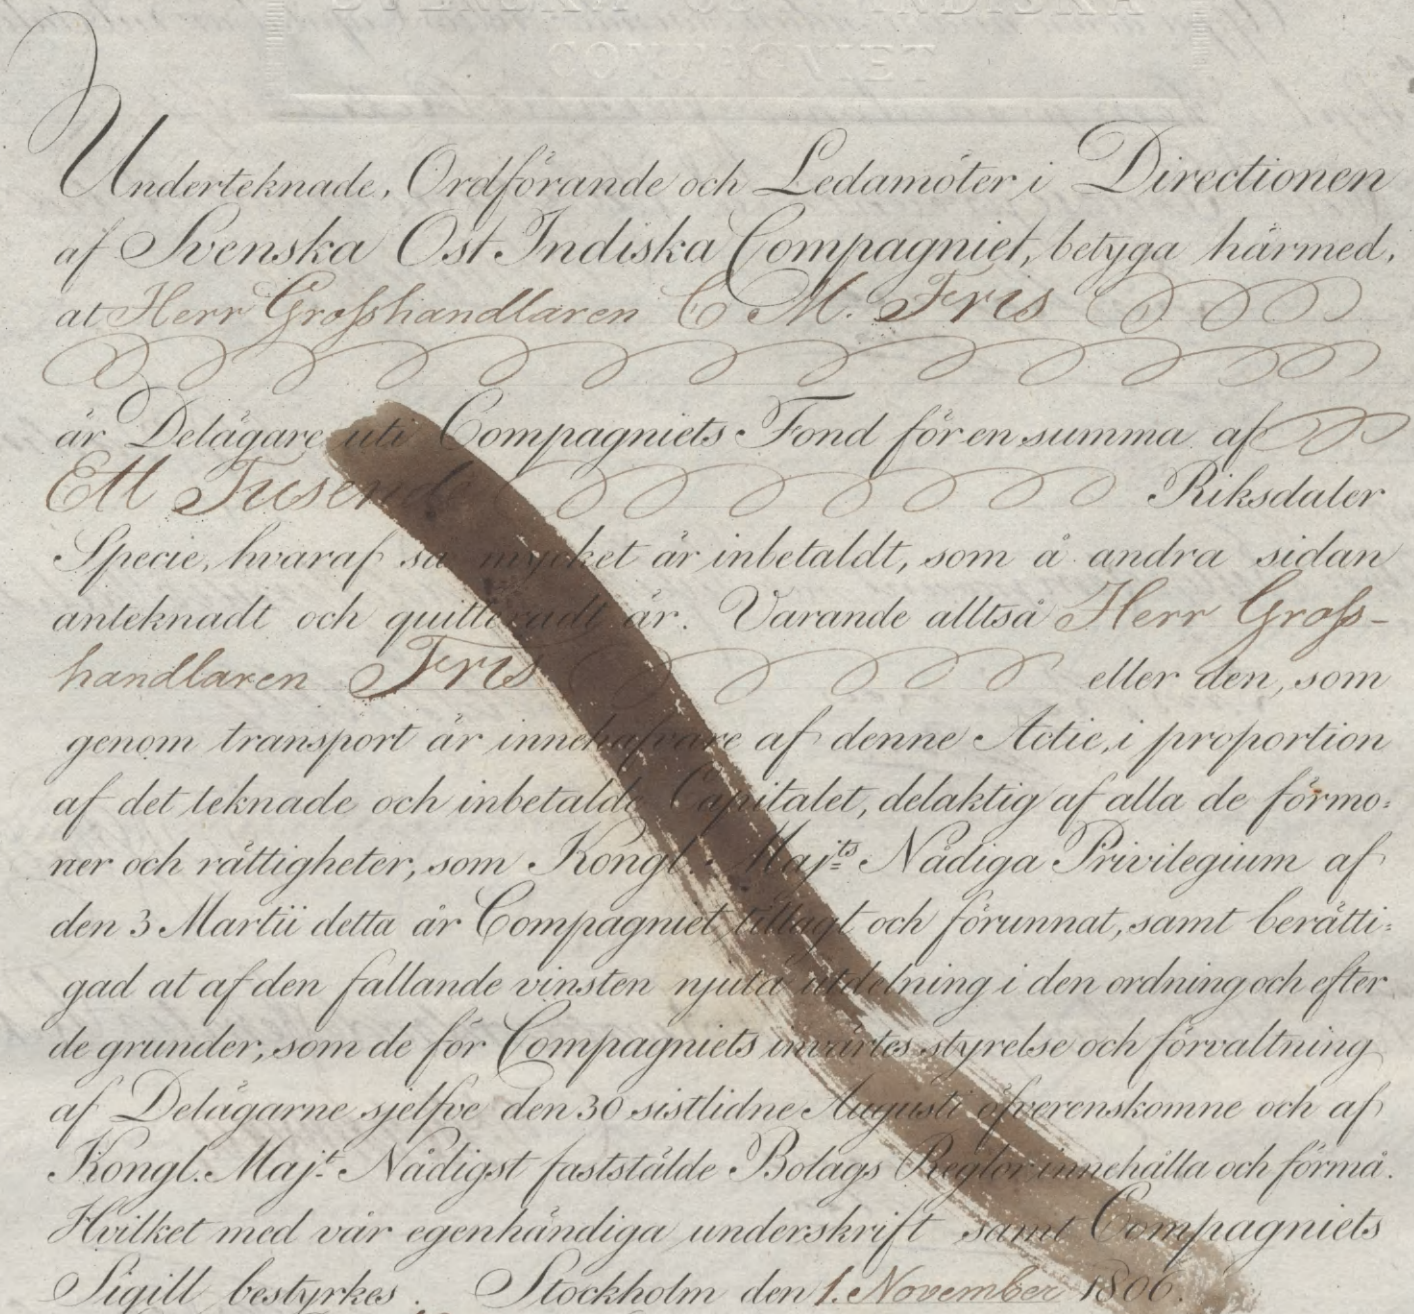 SVENSKA OST INDISKA
COMPAGNIET
Underteknade, Ordförande och Ledamöter i Directionen
af Svenska Ost Indiska Compagniet, betyga härmed,
at Herr Grosshandlaren C M. Fris
är Delägare uti Compagniets Fond för en summa af
Ett Tusende Riksdaler
Specie, hvaraf så mycket är inbetaldt, som å andra sidan
anteknadt och quitteradt är. Varande alltså Herr Gross-
handlaren Fris eller den, som
genom transport är innehafvare af denne Actie, i proportion
af det teknade och inbetalde Capitalet, delaktig af alla de förmo:
ner och rättigheter, som Kongl. Maj:ts Nådiga Privilegium af
den 3 Martii detta år Compagniet tillagt och förunnat, samt berätti:
gad at af den fallande vinsten njuta utdelning i den ordning och efter
de grunder, som de för Compagniets invärtes styrelse och förvaltning
af Delägarne sjelfve den 30 sistlidne Augusti öfverenskomne och af
Kongl. Maj:t Nådigst fastställde Bolags Reglor innehålla och förmå.
Hvilket med vår egenhändiga underskrift samt Compagniets
Sigill bestyrkes. Stockholm den 1. November 1806.